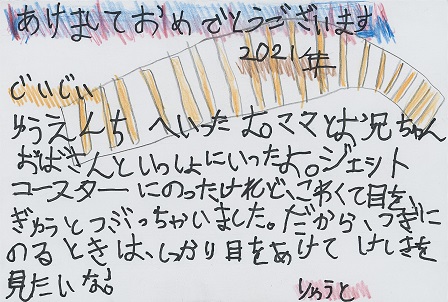 あけましておめでとうございます
2021年
じいじい
ゆうえんち へいったよ。ママとお兄ちゃん
おばさんといっしょにいったよ。ジェット
コースターにのったけれど、こわくて目を、
ぎゅうとつぶっちゃいました。だから、つぎに
のるときは、しっかり目をあけて けしきを
見たいな。
りゅうと